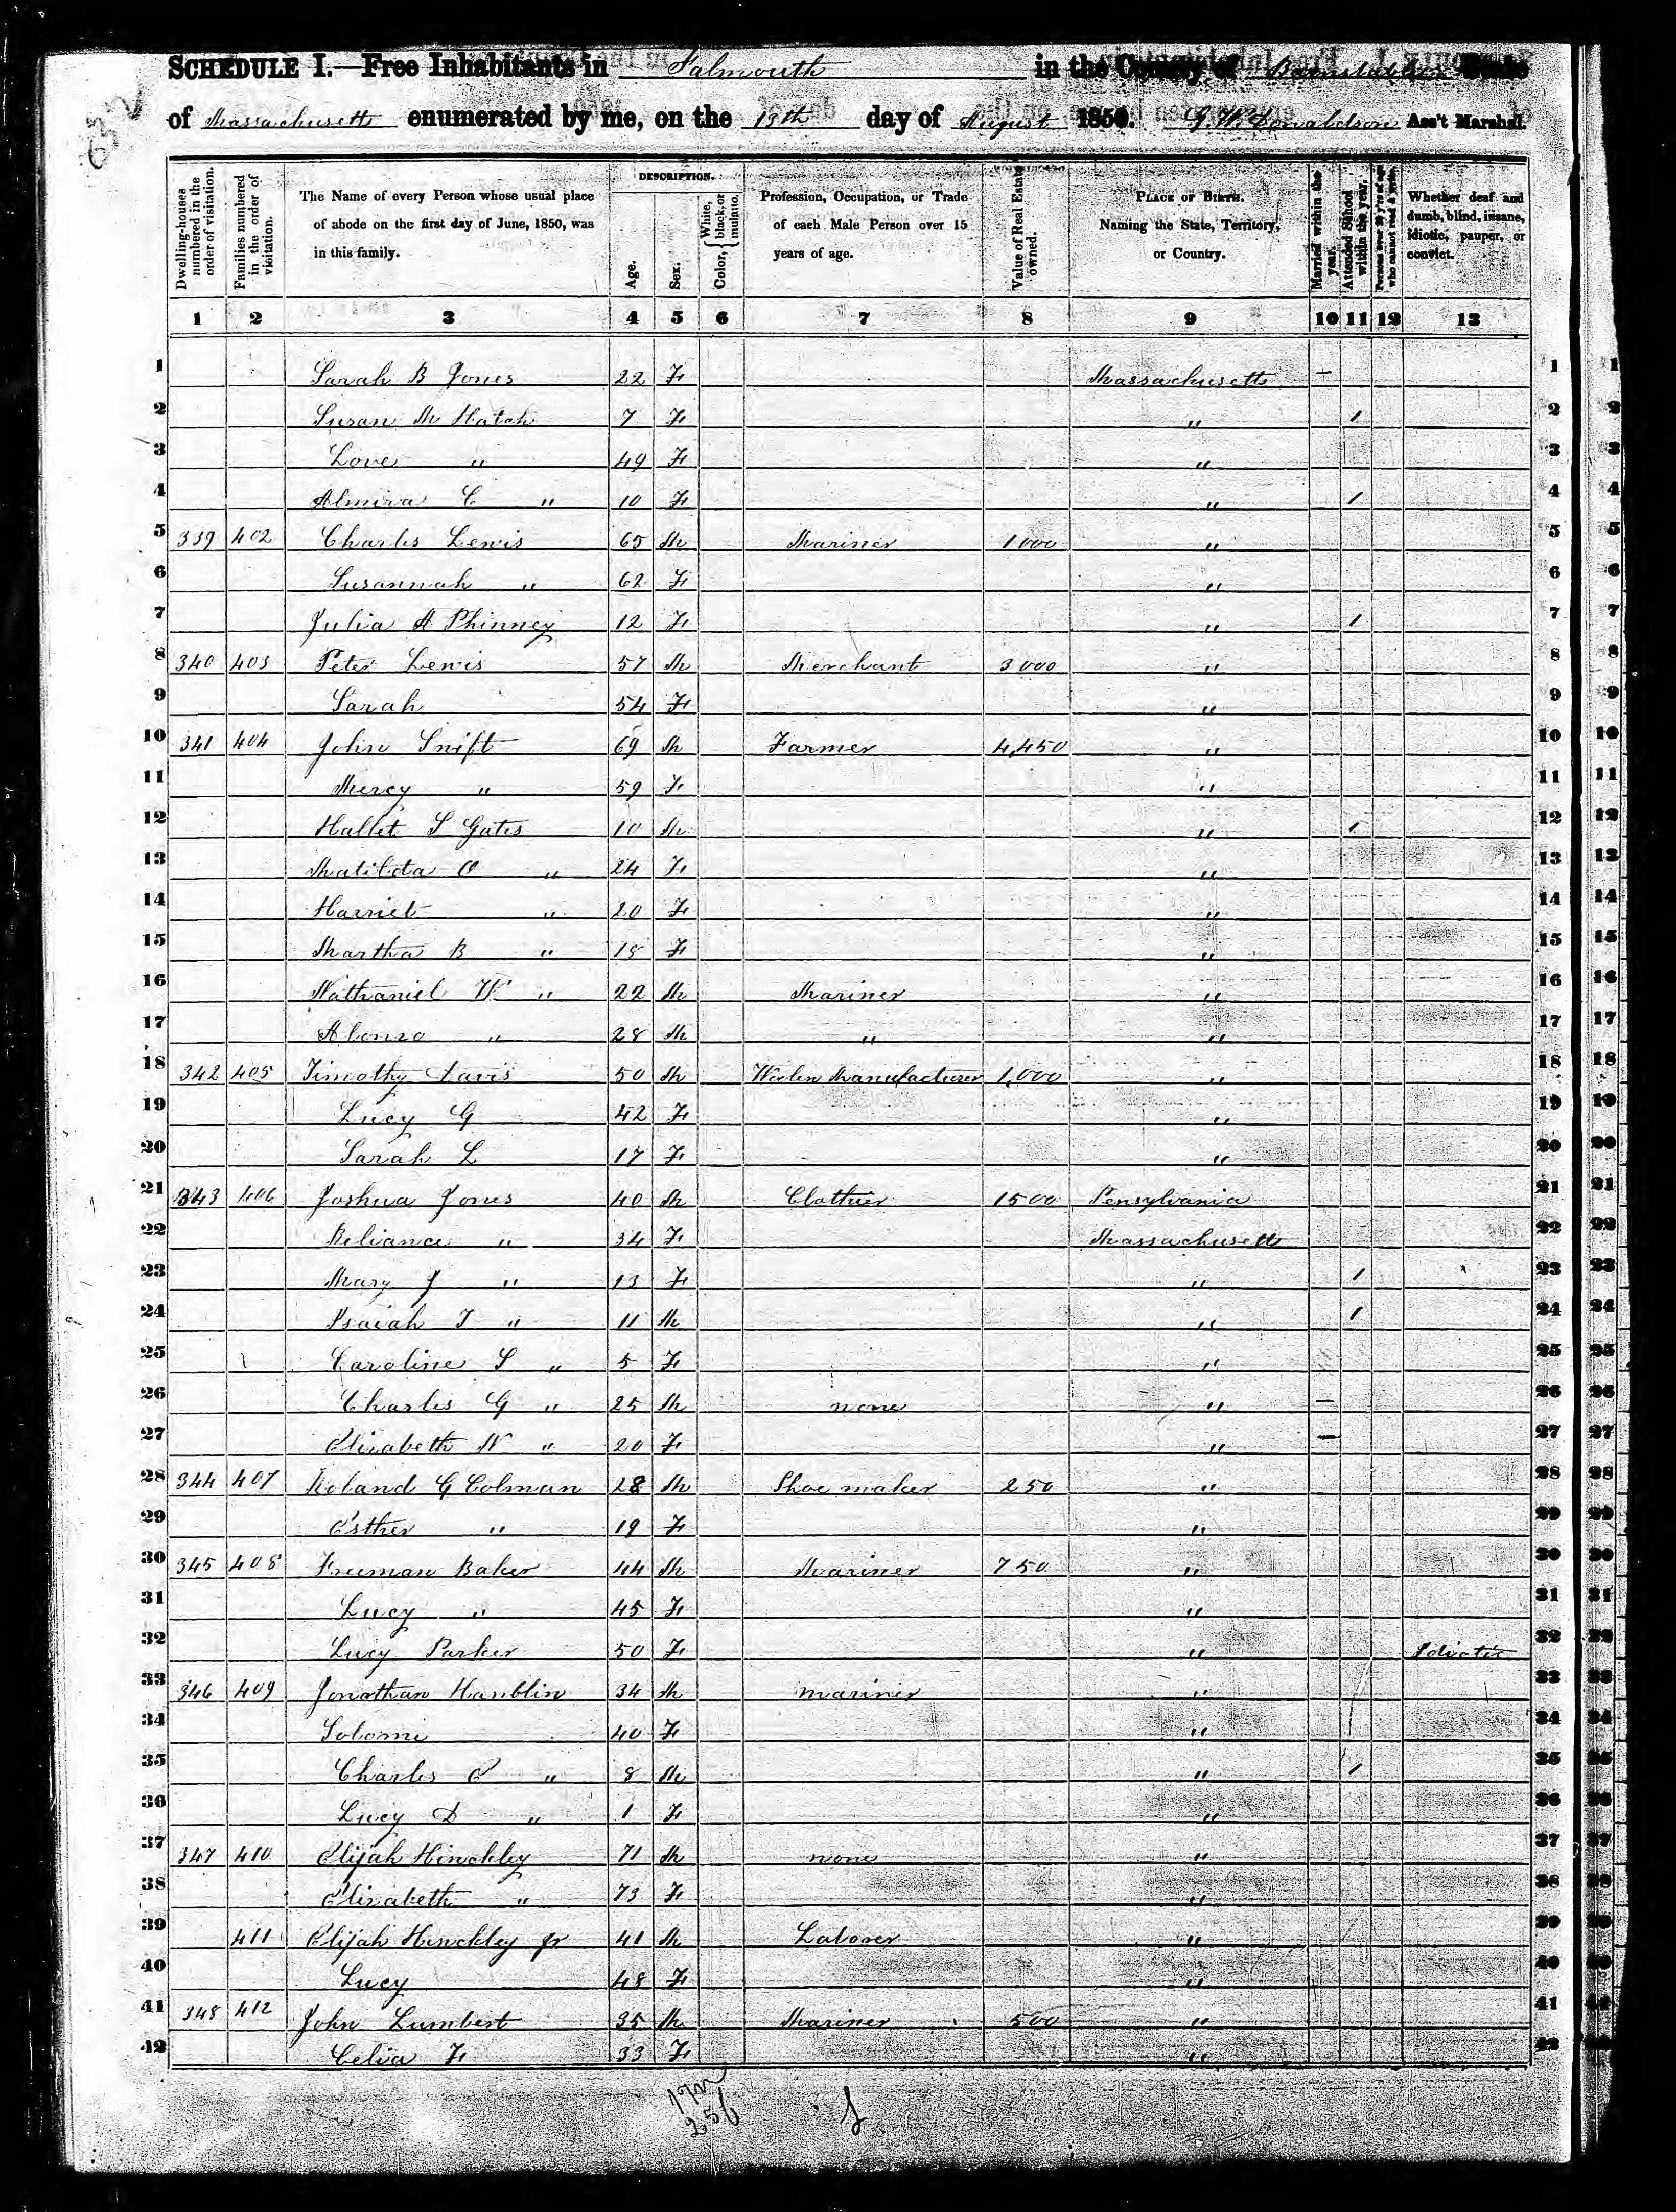 632
SCHEDULE I.—Free Inhabitants in Falmouth in the County of Barnstable State
of Massachusetts enumerated by me, on the 13th day of August 1850. G. W. Donaldson Ass't Marshal.
Dwelling-houses numbered in the order of visitation.
Families numbered in the order of visitation.
The Name of every Person whose usual place of abode on the first day of June, 1850, was in this family.
DESCRIPTION.
Age.
Sex.
Color, { White, black, or mulatto.
Profession, Occupation, or Trade of each Male Person over 15 years of age.
Value of Real Estate owned.
PLACE OF BIRTH. Naming the State, Territory, or Country.
Married within the year.
Attended School within the year.
Persons over 20 y'rs of age who cannot read & write.
Whether deaf and dumb, blind, insane, idiotic, pauper, or convict.
1 2 3 4 5 6 7 8 9 10 11 12 13
1 Sarah B Jones 22 F Massachusetts – 1 1
2 Susan M Hatch 7 F " / 2 2
3 Love " 49 F " 3 3
4 Almira C " 10 F " / 4 4
5 339 402 Charles Lewis 65 M Mariner 1000 " 5 5
6 Susannah " 62 F " 6 6
7 Julia A Phinney 12 F " / 7 7
8 340 403 Peter Lewis 57 M Merchant 3000 " 8 8
9 Sarah 54 F " 9 9
10 341 404 John Swift 69 M Farmer 4,450 " 10 10
11 Mercy " 59 F " 11 11
12 Hallet S Gates 10 M " / 12 12
13 Matilda O " 24 F " 13 13
14 Harriet " 20 F " 14 14
15 Martha B " 18 F " 15 15
16 Nathaniel W " 22 M Mariner " 16 16
17 Alonzo " 28 M " " 17 17
18 342 405 Timothy Davis 50 M Woolen Manufacturer 1,000 " 18 18
19 Lucy G 42 F " 19 19
20 Sarah L 17 F " 20 20
21 343 406 Joshua Jones 40 M Clothier 1500 Pensylvania 21 21
22 Reliance " 34 F Massachusetts 22 22
23 Mary J " 13 F " / 23 23
24 Isaiah T " 11 M " / 24 24
25 Caroline S " 5 F " 25 25
26 Charles G " 25 M none " – 26 26
27 Elizabeth N " 20 F " – 27 27
28 344 407 Roland G Colman 28 M Shoe maker 250 " 28 28
29 Esther " 19 F " 29 29
30 345 408 Freeman Baker 44 M Mariner 750 " 30 30
31 Lucy " 45 F " 31 31
32 Lucy Parker 50 F " Idiotic 32 32
33 346 409 Jonathan Hamblin 34 M mariner " 33 33
34 Solomi 40 F " 34 34
35 Charles " 8 M " / 35 35
36 Lucy D " 1 F " 36 36
37 347 410 Elijah Hinckley 71 M none " 37 37
38 Elizabeth " 73 F " 38 38
39 411 Elijah Hinckley jr 41 M Laborer " 39 39
40 Lucy 48 F " 40 40
41 348 412 John Lumbert 35 M Mariner 500 " 41 41
42 Celia F 33 F " 42 42